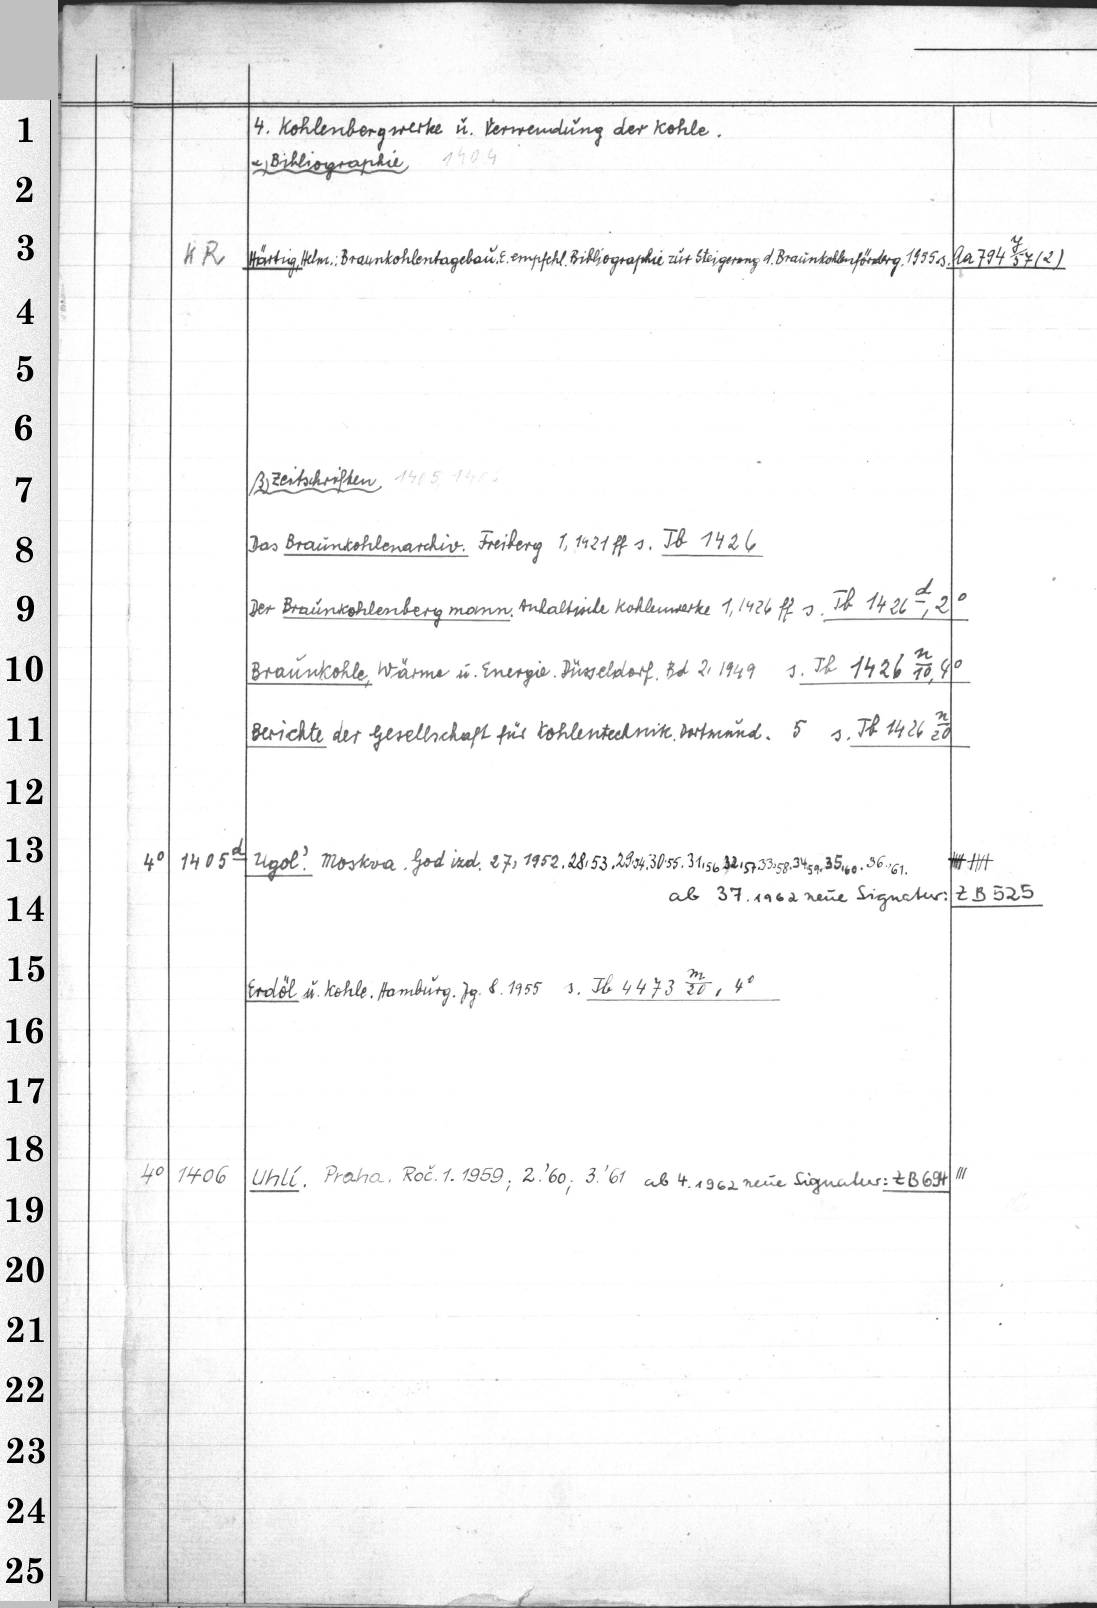 1
4. Kohlenbergwerke ü. Verwendüng der Kohle.
α) Bibliographie 1404
2
3
KR Härtig, Helm.: Braunkohlentagebaü. E. empfehl. Bibliographie zür Steigerung d. Braünkohlenförderg. 1955 s. Aa 794 y/57 (2)
4
5
6
7
β) Zeitschriften 1405, 1406
8
Das Braünkohlenarchiv. Freiberg 1, 1921 ff s. Tb 1426
9
Der Braünkohlenbergmann. Anhaltische Kohlenwerke 1, 1926 ff s. Tb 1426 d, 2°
10
Braünkohle, Wärme ü. Energie. Düsseldorf. Bd 2, 1949 s. Tb 1426 n/10, 4°
11
Berichte der Gesellschaft für Kohlentechnik. Dortmünd. 5 s. Tb 1426 n/20
12
13
4° 1405 d Ugol'. Moskva. God izd. 27, 1952. 28, 53. 29, 54. 30, 55. 31, 56 32, 57. 33, 58. 34, 59. 35, 60. 36, 61.
14
ab 37. 1962 neüe Signatur: ZB 525
15
Erdöl ü. Kohle. Hambürg. Jg. 8. 1955 s. Tb 4473 m/20, 4°
16
17
18
4° 1406 Uhlí. Praha. Roč. 1. 1959; 2. '60; 3. '61 ab 4. 1962 neüe Signatur: ZB 694 III
19
20
21
22
23
24
25